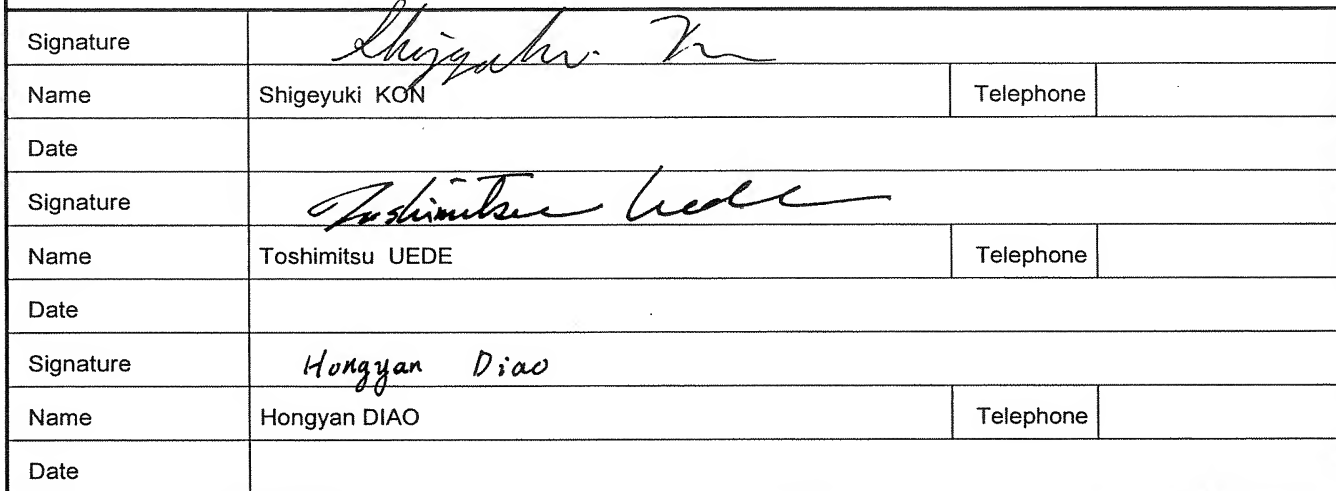 Signature Shigeyuki Kon
Name Shigeyuki KON Telephone
Date
Signature Toshimitsu Uede
Name Toshimitsu UEDE Telephone
Date
Signature Hongyan Diao
Name Hongyan DIAO Telephone
Date